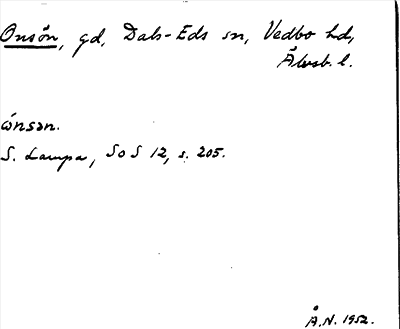 Onsön, gd, Dals-Eds sn, Vedbo hd,
Älvsb. l.
ònsən.
S. Lampa, SoS 12, s. 205.
Å.N. 1952.